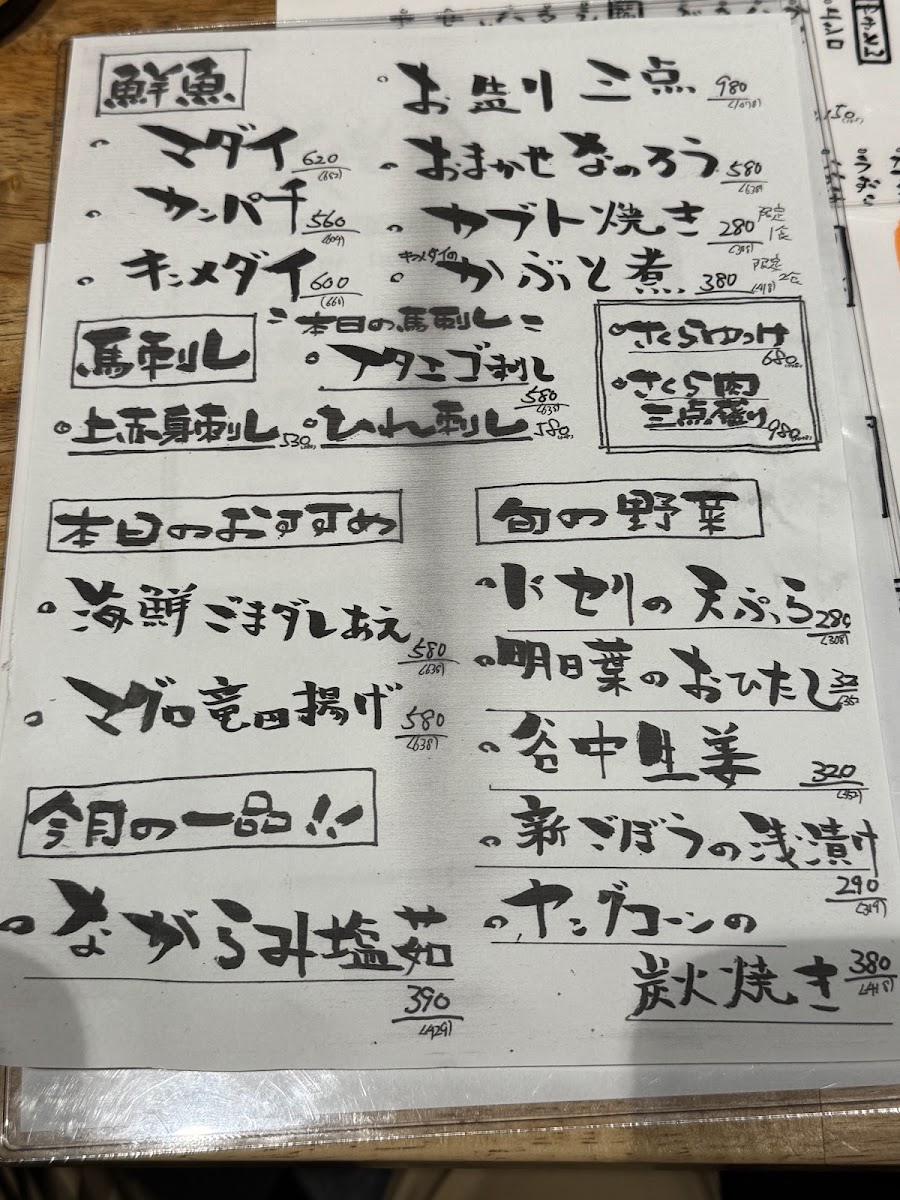 鮮魚
マダイ 620 (682)
カンパチ 560
キンメダイ 600 (660)
お盛り 三点 980 (1078)
おまかせ なめろう 580 (638)
カブト焼き 280 (308) 限定1食
キンメダイの かぶと煮 380 (418) 限定2食
馬刺し
本日の馬刺し
フタエゴ刺し 580 (638)
上赤身刺し 530
ひれ刺し 580
さくらゆっけ 680
さくら肉
三点盛り 980
本日のおすすめ
海鮮ごまダレあえ 580 (638)
マグロ竜田揚げ 580 (638)
今月の一品!!
ながらみ塩茹 390 (429)
旬の野菜
セリの天ぷら 280 (308)
明日葉のおひたし
谷中生姜 320 (352)
新ごぼうの浅漬け 290 (319)
ヤングコーンの
炭火焼き 380 (418)